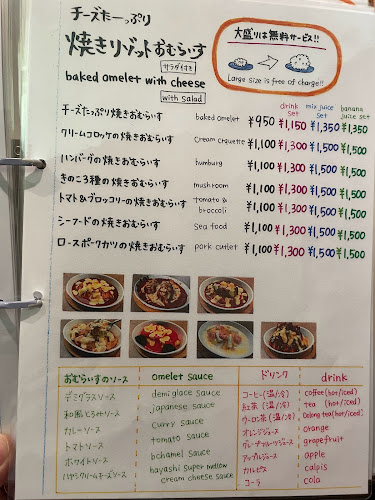 チーズたーっぷり
焼きリゾットおむらいす
サラダ付き
baked omelet with cheese
with salad
大盛りは無料サービス!!
Large size is free of charge!!
drink set
mix juice set
banana juice set
チーズたっぷり焼きおむらいす baked omelet ¥950 ¥1,150 ¥1,350 ¥1,350
クリームコロッケの焼きおむらいす cream croquette ¥1,100 ¥1,300 ¥1,500 ¥1,500
ハンバーグの焼きおむらいす humburg ¥1,100 ¥1,300 ¥1,500 ¥1,500
きのこ3種の焼きおむらいす mushroom ¥1,100 ¥1,300 ¥1,500 ¥1,500
トマト&ブロッコリーの焼きおむらいす tomato & broccoli ¥1,100 ¥1,300 ¥1,500 ¥1,500
シーフードの焼きおむらいす sea food ¥1,100 ¥1,300 ¥1,500 ¥1,500
ロースポークカツの焼きおむらいす pork cutlet ¥1,100 ¥1,300 ¥1,500 ¥1,500
おむらいすのソース omelet sauce ドリンク drink
デミグラスソース demi glace sauce コーヒー(温/冷) coffee (hot/iced)
和風しょうゆソース japanese sauce 紅茶(温/冷) tea (hot/iced)
カレーソース curry sauce ウーロン茶(温/冷) Oolong tea (hot/iced)
トマトソース tomato sauce オレンジジュース orange
ホワイトソース bchamel sauce グレープフルーツジュース grapefruit
ハヤシクリームチーズソース hayashi super mellow cream cheese sauce アップルジュース apple
カルピス calpis
コーラ cola